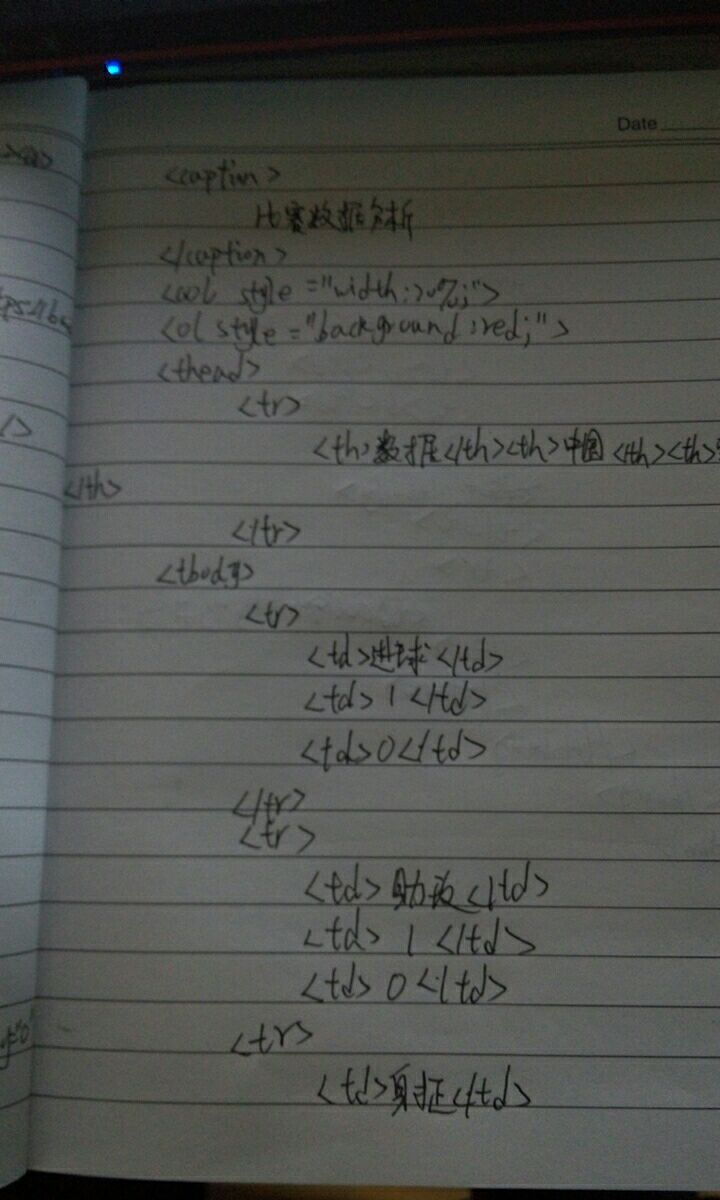 Date
<caption>
比赛数据分析
</caption>
<col style="width:20%;">
<ol style="background:red;">
<thead>
<tr>
<th>数据</th><th>中国</th><th>
</th>
</tr>
<tbody>
<tr>
<td>进球</td>
<td>1</td>
<td>0</td>
</tr>
<tr>
<td>助攻</td>
<td>1</td>
<td>0</td>
<tr>
<td>射正</td>